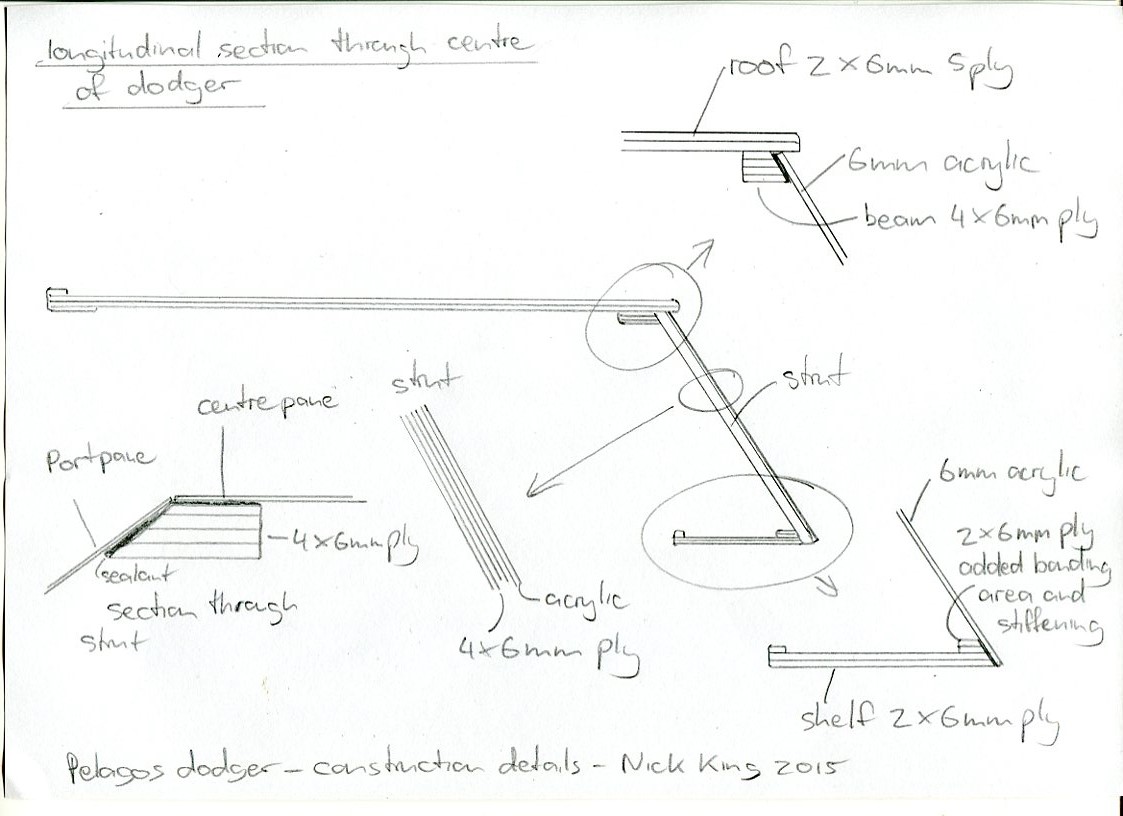 longitudinal section through centre
of dodger
roof 2 x 6mm 5ply
6mm acrylic
beam 4x6mm ply
strut
strut
centre pane
Port pane
4x6mm ply
sealant
section through
strut
acrylic
4x6mm ply
6mm acrylic
2x6mm ply
added bonding
area and
stiffening
shelf 2x6mm ply
Pelagos dodger - construction details - Nick King 2015